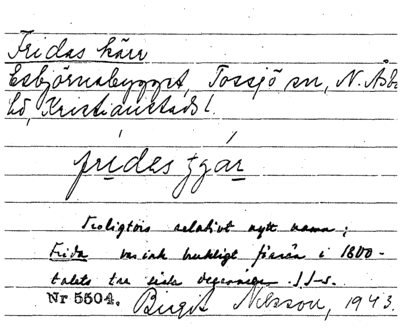 Fridas kärr
Esbjörnabygget, Tossjö sn, N. Åsbo
hd, Kristianstads l.
frídas çár
Troligtvis relativt nytt namn;
Frida var ink brukligt förrän i 1800-
talets tre sista decennier. I I-s.
Nr 5504. Birgit Nilsson, 1943.